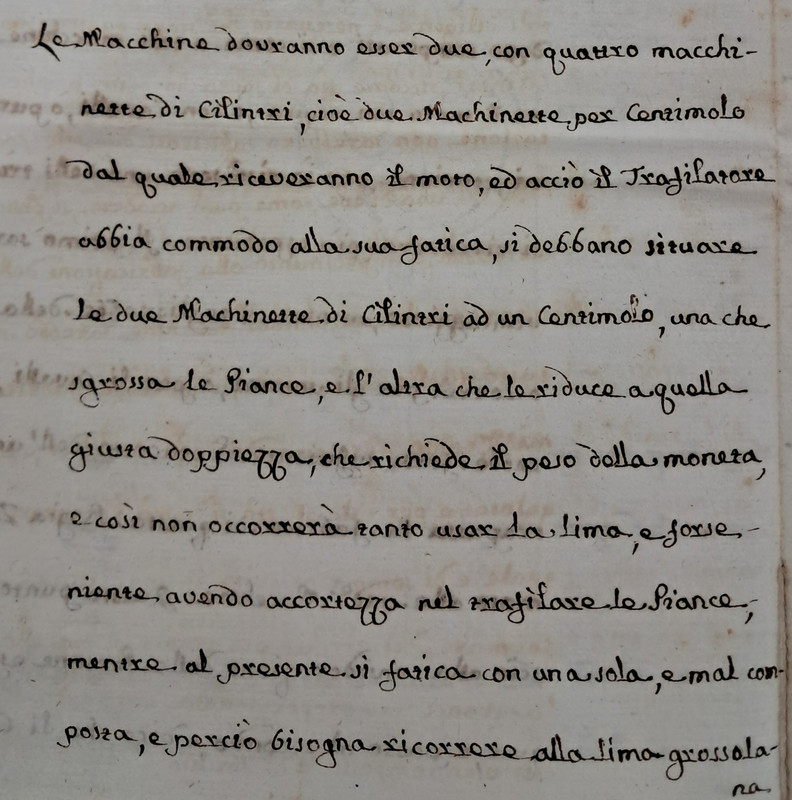 Le Macchine dovranno esser due, con quattro macchi-
nette di Cilintri, cioè due Machinette per Centimolo
dal quale riceveranno il moto, ed acciò il Trafilatore
abbia commodo alla sua fatica, si debbano situare
le due Machinette di Cilintri ad un Centimolo, una che
sgrossa le Piance, e l' altra che le riduce a quella
giusta doppiezza, che richiede il peso della moneta,
e così non occorrerà tanto usar la lima, e forse
niente, avendo accortezza nel trafilare le Piance,
mentre al presente si fatica con una sola, e mal com-
posta, e perciò bisogna ricorrere alla lima grossola-
na